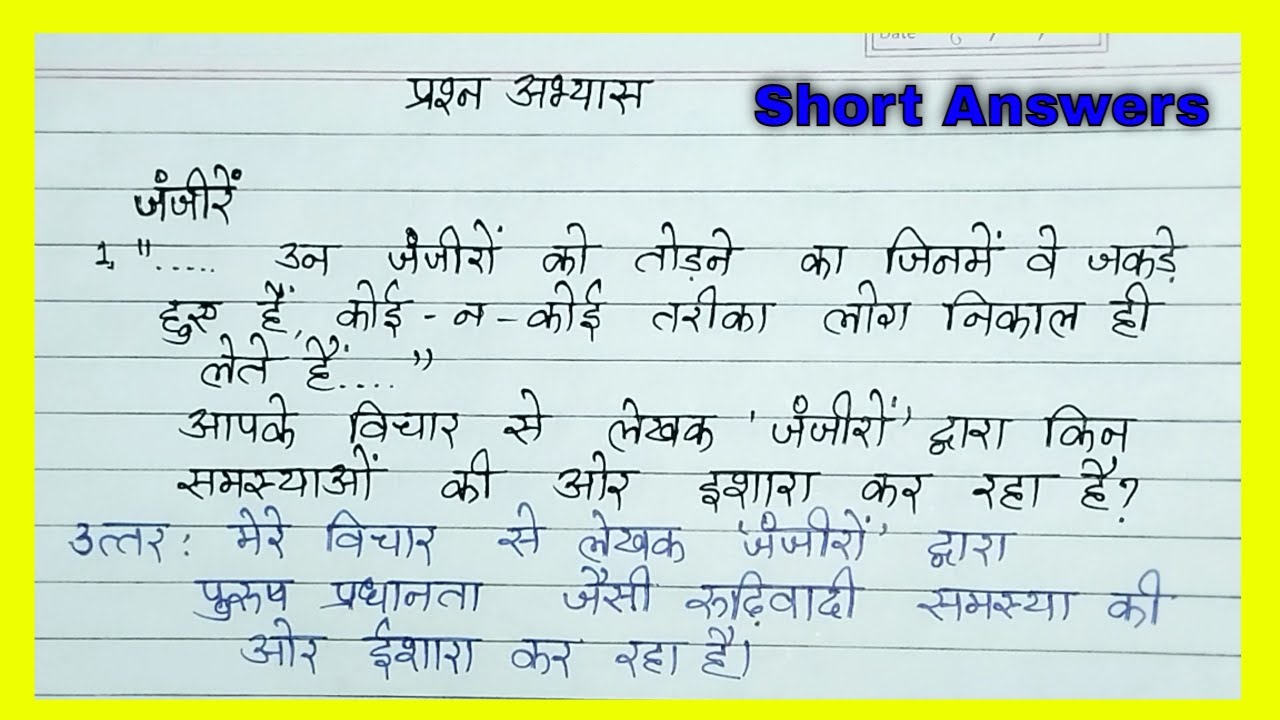 Date
प्रश्न अभ्यास
Short Answers
जंजीरें
1. "..... उन जंजीरों को तोड़ने का जिनमें वे जकड़े
हुए हैं, कोई-न-कोई तरीका लोग निकाल ही
लेते हैं...."
आपके विचार से लेखक 'जंजीरों' द्वारा किन
समस्याओं की ओर इशारा कर रहा है?
उत्तर: मेरे विचार से लेखक 'जंजीरों' द्वारा
पुरुष प्रधानता जैसी रूढ़िवादी समस्या की
ओर ईशारा कर रहा है।